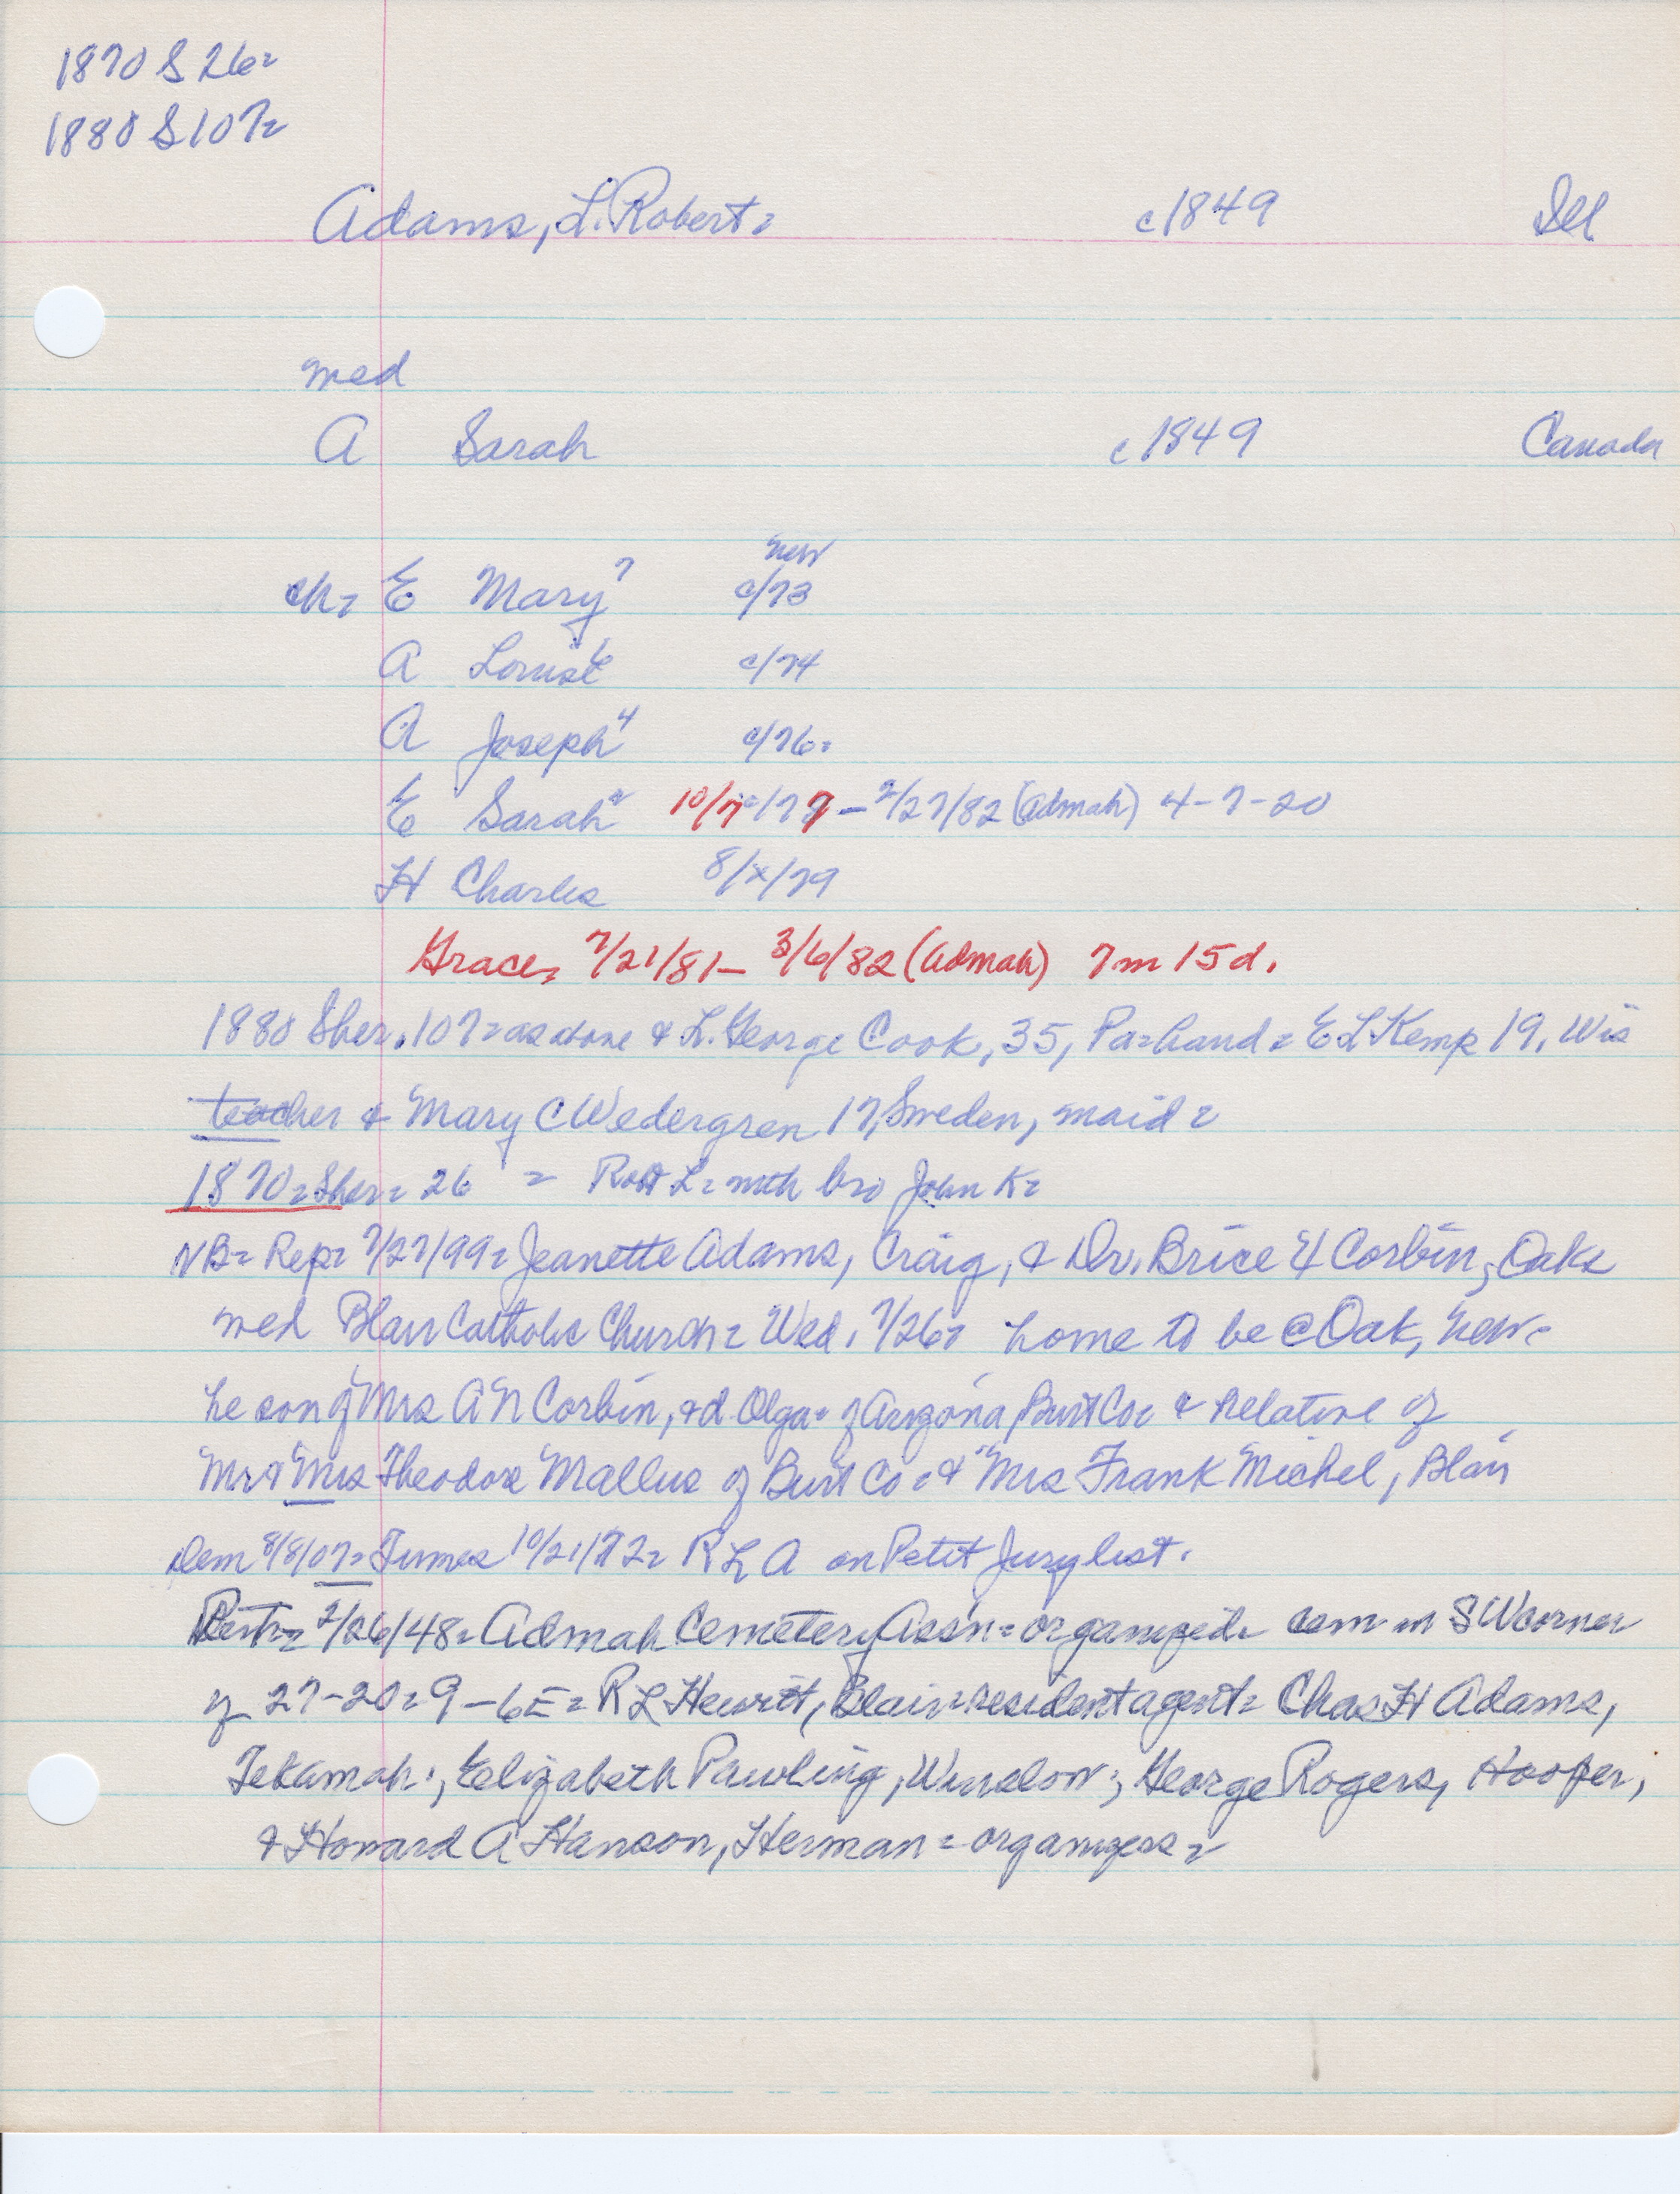 1870 S 26=
1880 S 107=
Adams, L. Robert= c1849 Ill
med
A Sarah c1849 Canada
new
ch= E Mary 7 c/73
A Louise 6 c/74
A Joseph 4 c/76=
E Sarah 2 10/7/77 – 2/27/82 (Admah) 4-7-20
H Charles 8/x/79
Grace= 7/21/81 – 3/6/82 (Admah) 7m 15d.
1880 Sher. 107= as above & L. George Cook, 35, Pa= hand= E L Kemp 19, Wis
teacher & Mary C Wedergren 17, Sweden, maid=
1870= Sher= 26 = Robt L= with bro John K=
NB= Rep= 7/27/99= Jeanette Adams, Craig, & Dr. Brice H Corbin, Oaks
med Blair Catholic Church= Wed. 7/26= home to be @ Oak, new=
he son of Mrs A N Corbin, & d Olga= of Arizona, Burt Co= & relative of
Mr & Mrs Theodore Mallus of Burt Co= & Mrs Frank Michel, Blair
Dem 8/8/07= Times 10/21/72= R L A on Petit Jury list.
2/26/48= Admah Cemetery Ass'n= organized= cem in SW corner
of 27-20=9-6E= R L Hewitt, Blair= resident agent= Chas H Adams,
Tekamah; Elizabeth Pawling, Winslow; George Rogers, Hooper,
& Howard A Hanson, Herman= organizers=